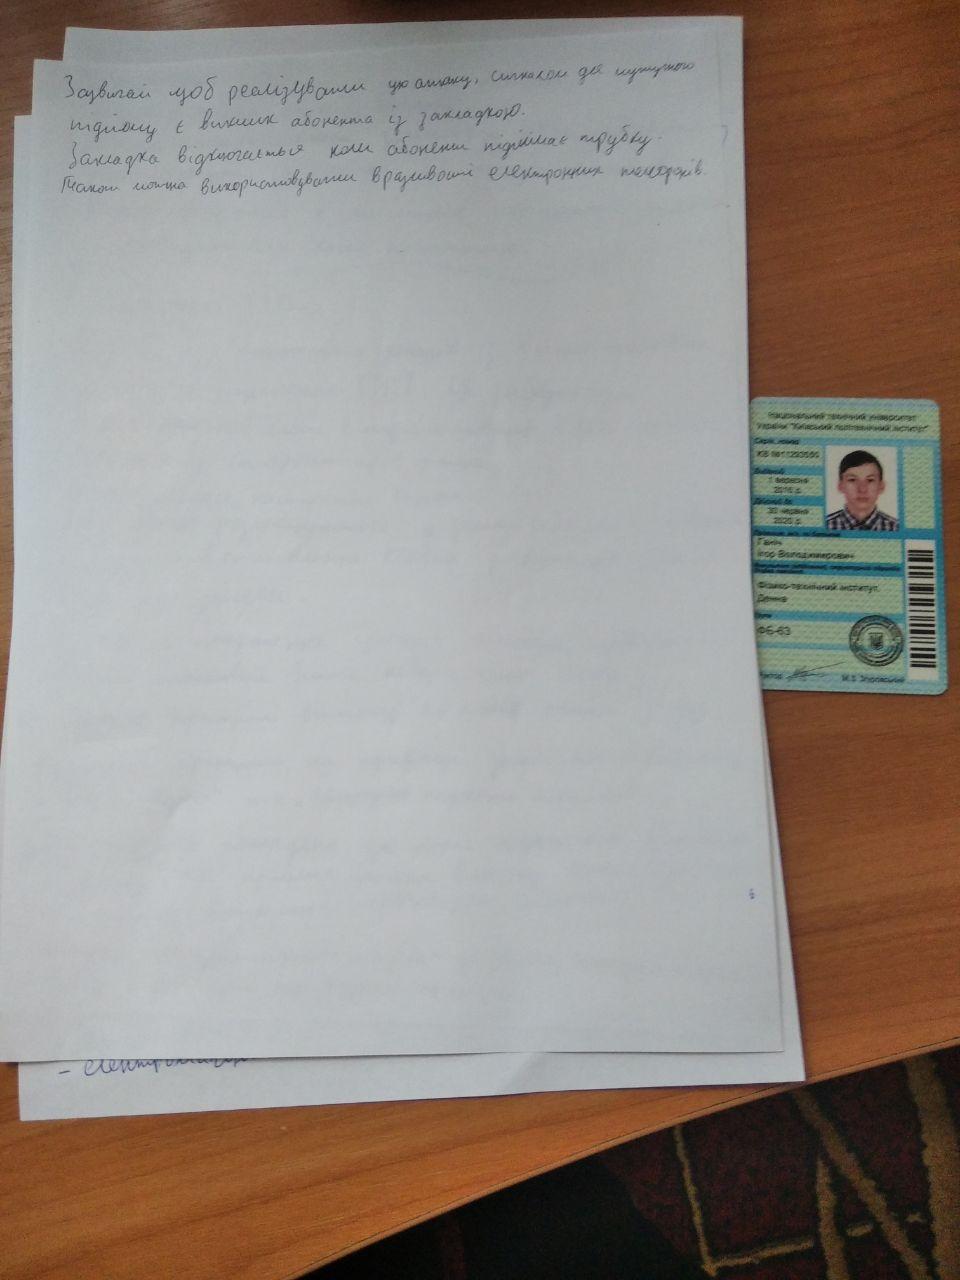 Зазвичай щоб реалізувати цю атаку, сигналом для
підйому є виклик абонента із закладкою.
Закладка відключається коли абонент підіймає трубку.
Також можна використовувати вразливості електронних телефонів.
Національний технічний університет
України "Київський політехнічний інститут"
Серія, номер
КВ №11293550
Виданий
1 вересня
2016 р.
Дійсний до
30 червня
2020 р.
Ганін
Ігор Володимирович
Фізико-технічний інститут
Денна
Група
ФБ-63
Ректор
М.З. Згуровський